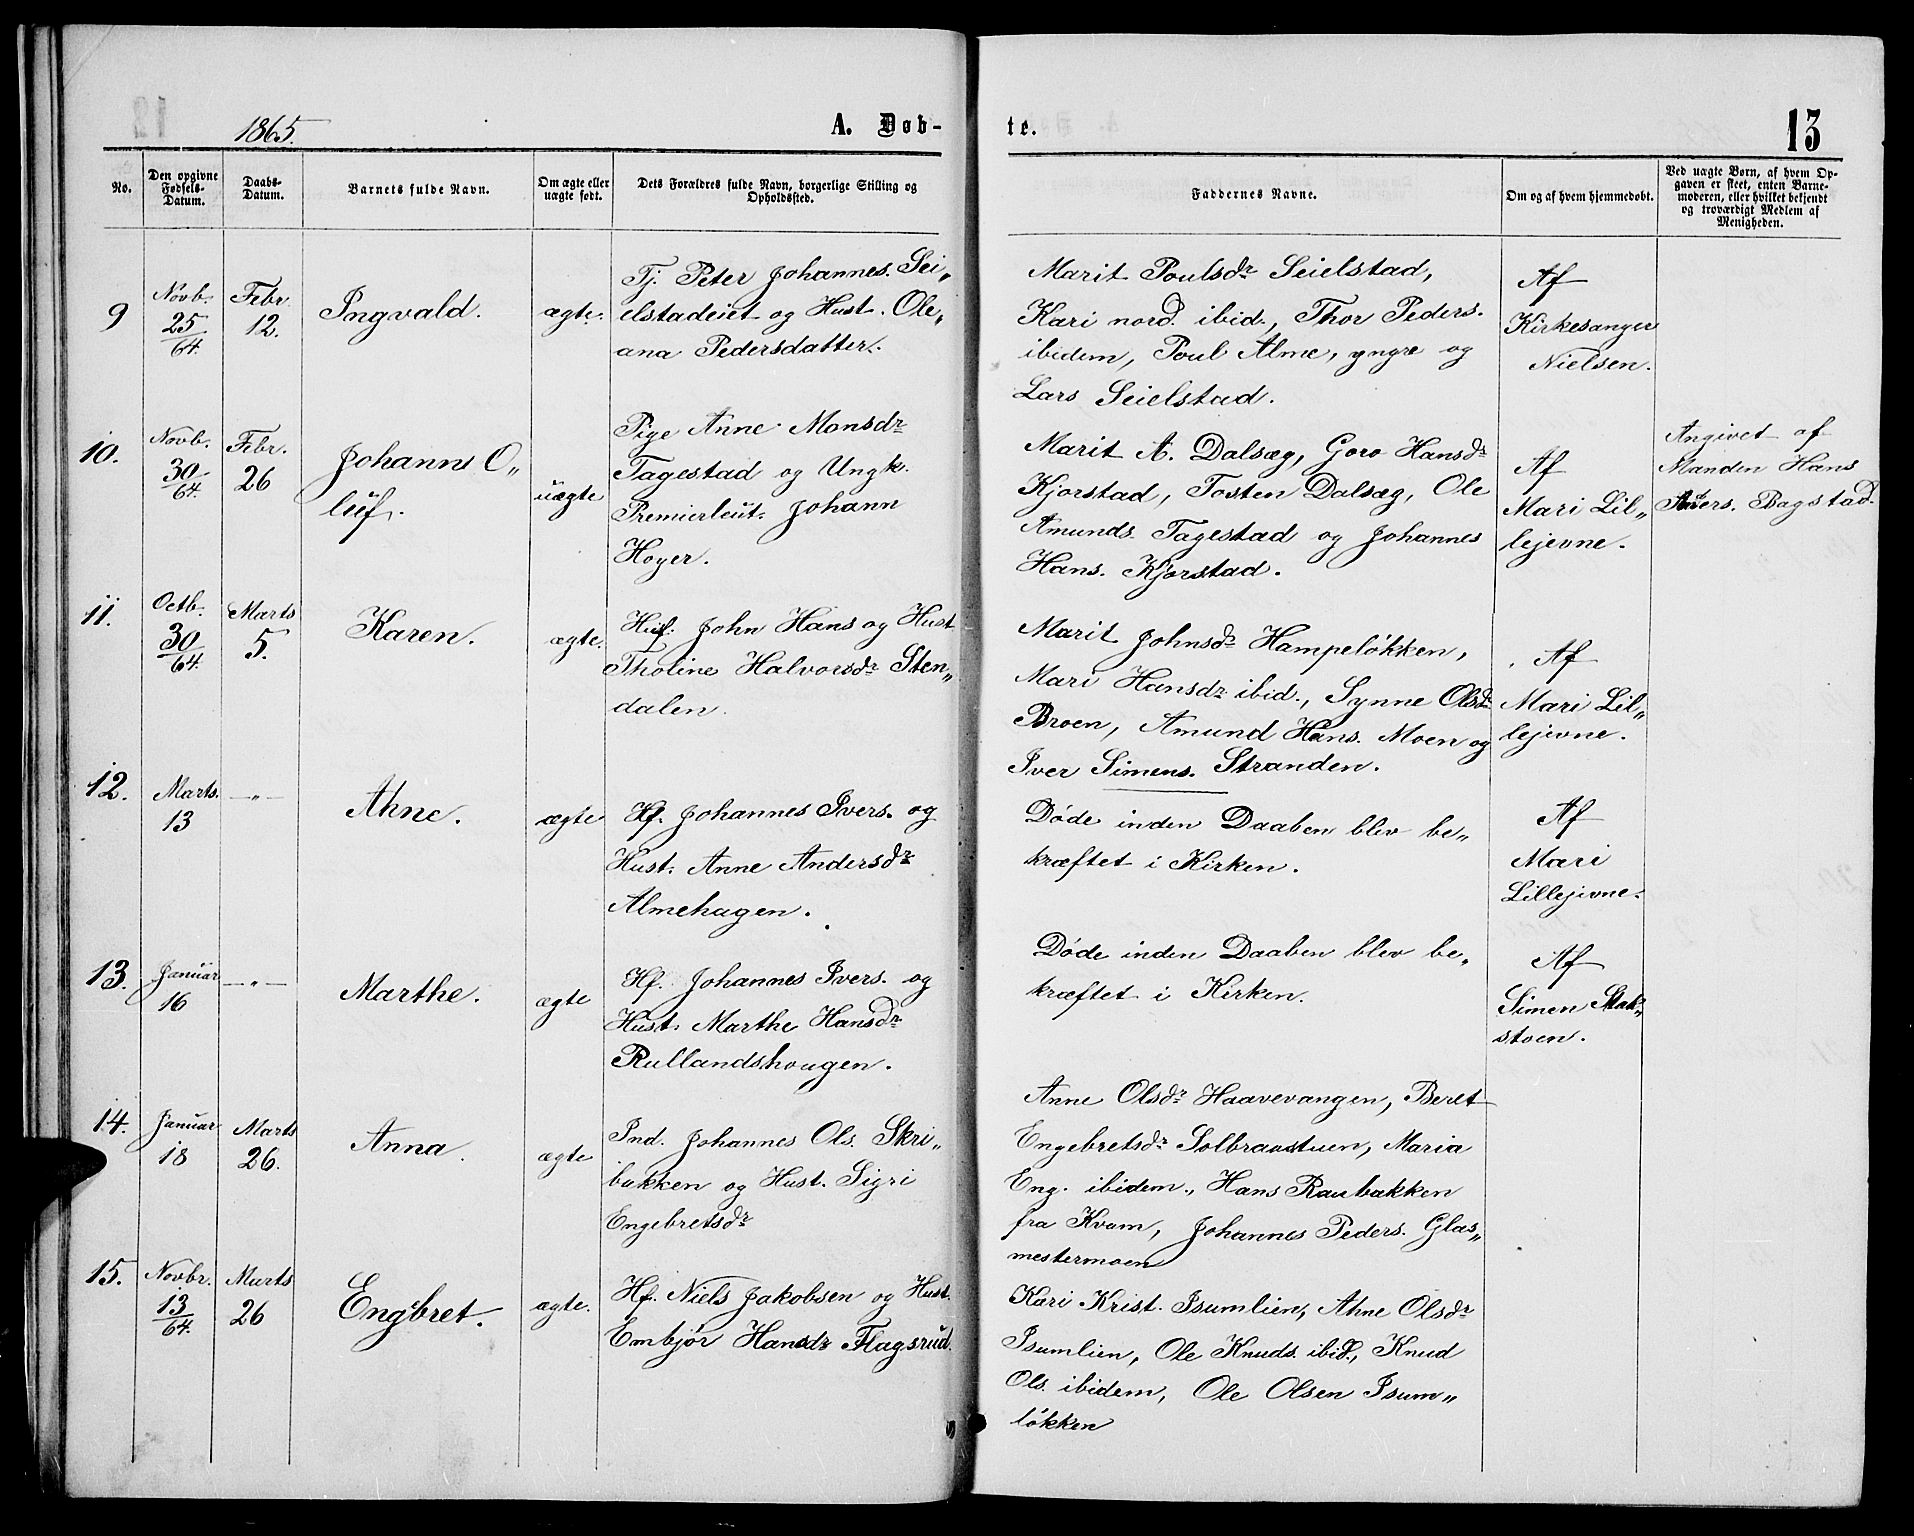 1865.
A. Döb-
te.
13
No.
Den opgivne
Fødsels-
Datum.
Daabs-
Datum.
Barnets fulde Navn.
Om ægte eller
uægte født.
Dets Forældres fulde Navn, borgerlige Stilling og
Opholdssted.
Faddernes Navne.
Om og af hvem hjemmedøbt.
Ved uægte Børn, af hvem Op-
gaven er skeet, enten Barne-
moderen, eller hvilket bekjendt
og troværdigt Medlem af
Menigheden.
9
Novb.
25/64.
Febr.
12.
Ingvald.
ægte.
Tj. Peter Johannes. Sei„
elstadeiet og Hust. Ole„
ana Pedersdatter.
Marit Poulsdr Seielstad,
Kari nord. ibid., Thor Peders.
ibidem, Poul Alme, yngre og
Lars Seielstad.
Af
Kirkesanger
Nielsen.
10.
Novb.
30/64.
Febr.
26
Johann O„
luf.
uægte
Pige Anne Monsdr
Tagestad og Ungk.
Premierleut. Johann
Hoyer.
Marit A. Dalsæg, Goro Hansdr
Kjorstad, Tosten Dalsæg, Ole
Amunds. Tagestad og Johannes
Hans. Kjorstad.
Af
Mari Lil„
lejevne.
Angivet af
Manden Hans
Anders. Bagstad.
11.
Octb.
30/64.
Marts
5.
Karen.
ægte.
Huf. John Hans og Hust
Tholine Halvorsdr Sten„
dalen.
Marit Johnsdr Hampeløkken,
Mari Hansdr ibid., Synne Olsdr
Broen, Amund Hans. Moen og
Iver Simens. Stranden.
Af
Mari Lil„
lejevne.
12.
Marts.
13
—„—
Ahne.
ægte
Hf. Johannes Ivers. og
Hust. Anne Andersdr
Almehagen.
Døde inden Daaben blev be„
kræftet i Kirken.
Af
Mari
Lillejevne.
13.
Januar
16
—„—
Marthe.
ægte
Hf. Johannes Ivers. og
Hust. Marthe Hansdr
Rullandshougen.
Døde inden Daaben blev be„
kræftet i Kirken.
Af
Simen Stak„
stoen.
14.
Januar
18
Marts
26.
Anna.
ægte
Ind. Johannes Ols. Skri„
bakken og Hust. Sigri
Engebretsdr
Anne Olsdr Haavevangen, Beret
Engebretsdr Solbraastuen, Maria
Eng. ibidem., Hans Raubakken
fra Kvam, Johannes Peders. Glas„
mestermoen
15.
Novbr.
13/64.
Marts
26
Engebret.
ægte.
Hf. Niels Jakobsen og Hust.
Embjør Hansdr Flagsrud.
Kari Krist. Isumlien, Ahne Olsdr
Isumlien, Ole Knuds. ibid., Knud
Ols. ibidem, Ole Olsen Isum„
løkken